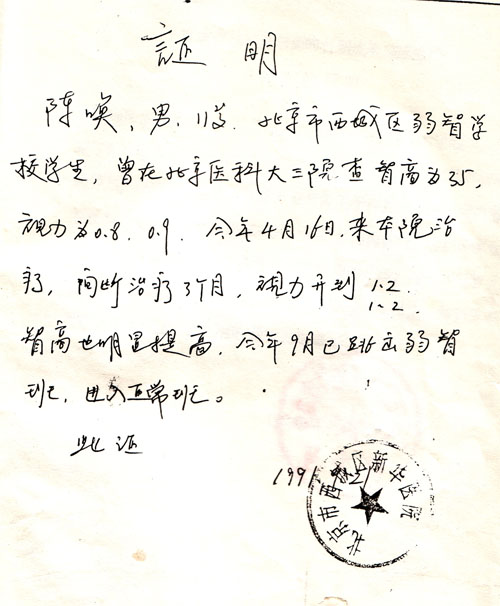 証 明
陈唤，男，11岁．北京市西城区弱智学
校学生，曾在北京医科大三院查智商为35，
视力为0.8．0.9．今年4月16日，来本院治
疗，间断治疗3个月，视力升到1.2．
1.2．
智商也明显提高，今年9月已跳出弱智
班，进入正常班。
此证
199
北京市西城区新华医院